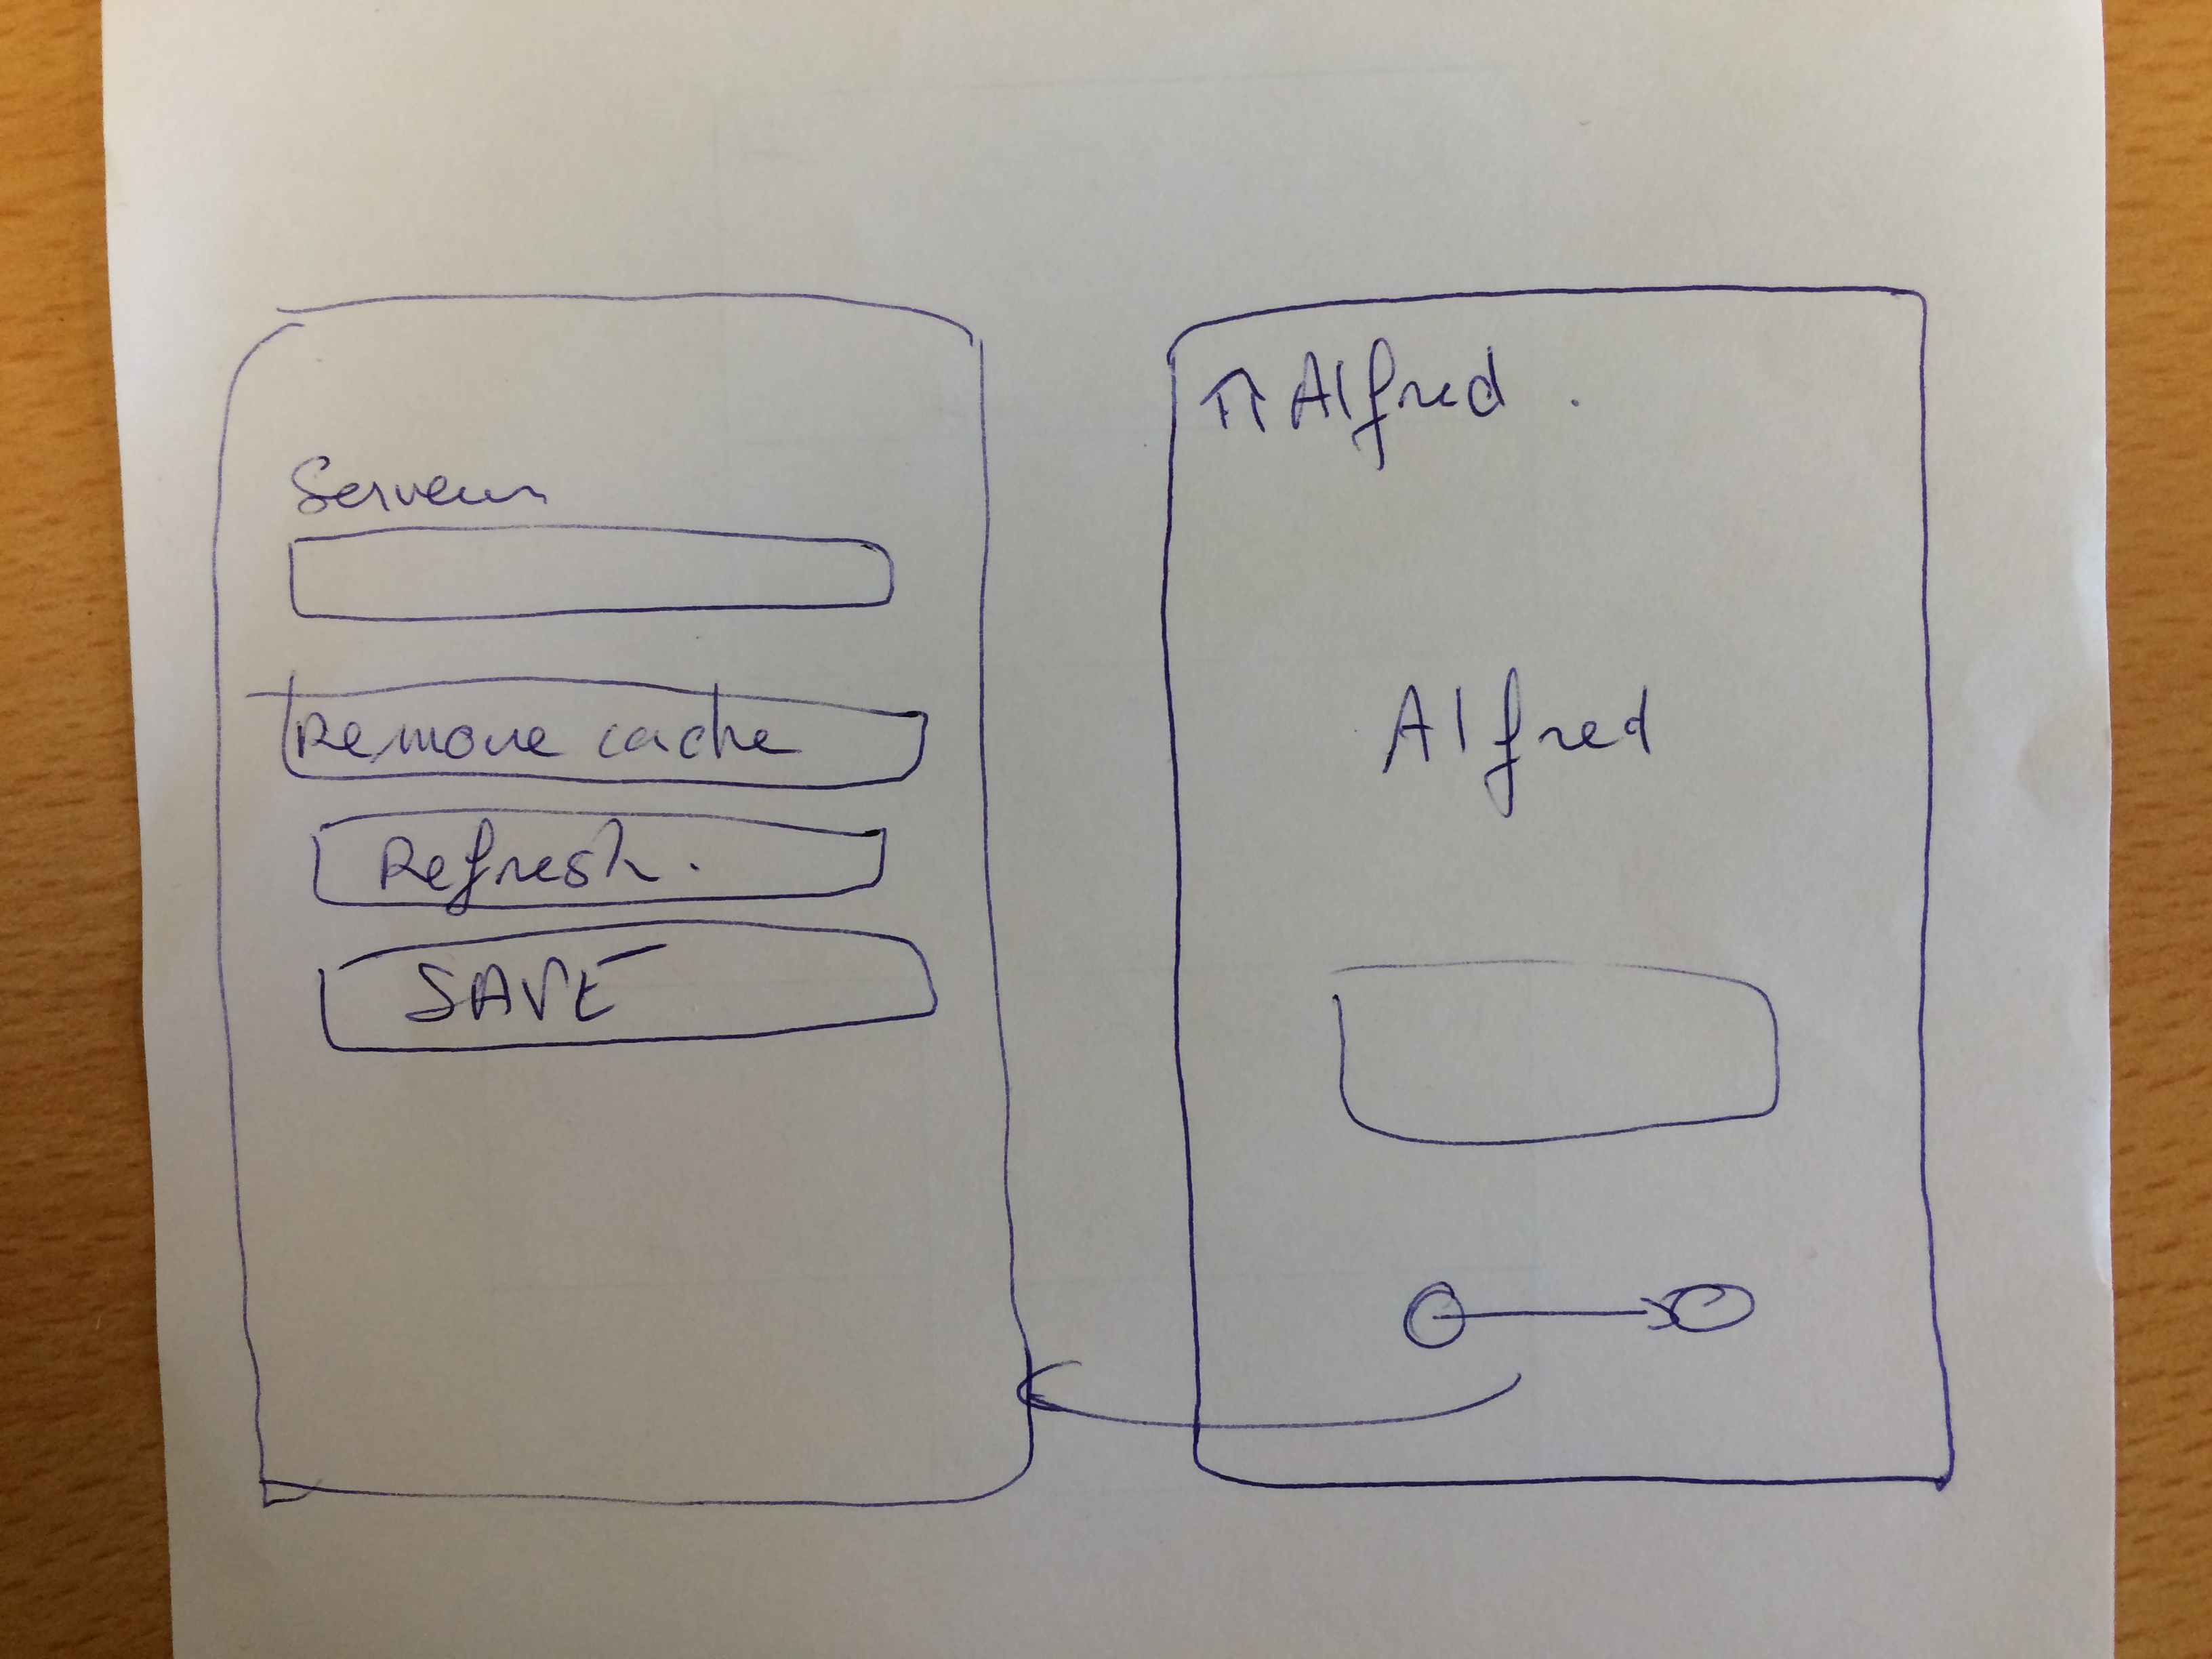 Serveur
Remove cache
Refresh.
SAVE
Alfred.
Alfred